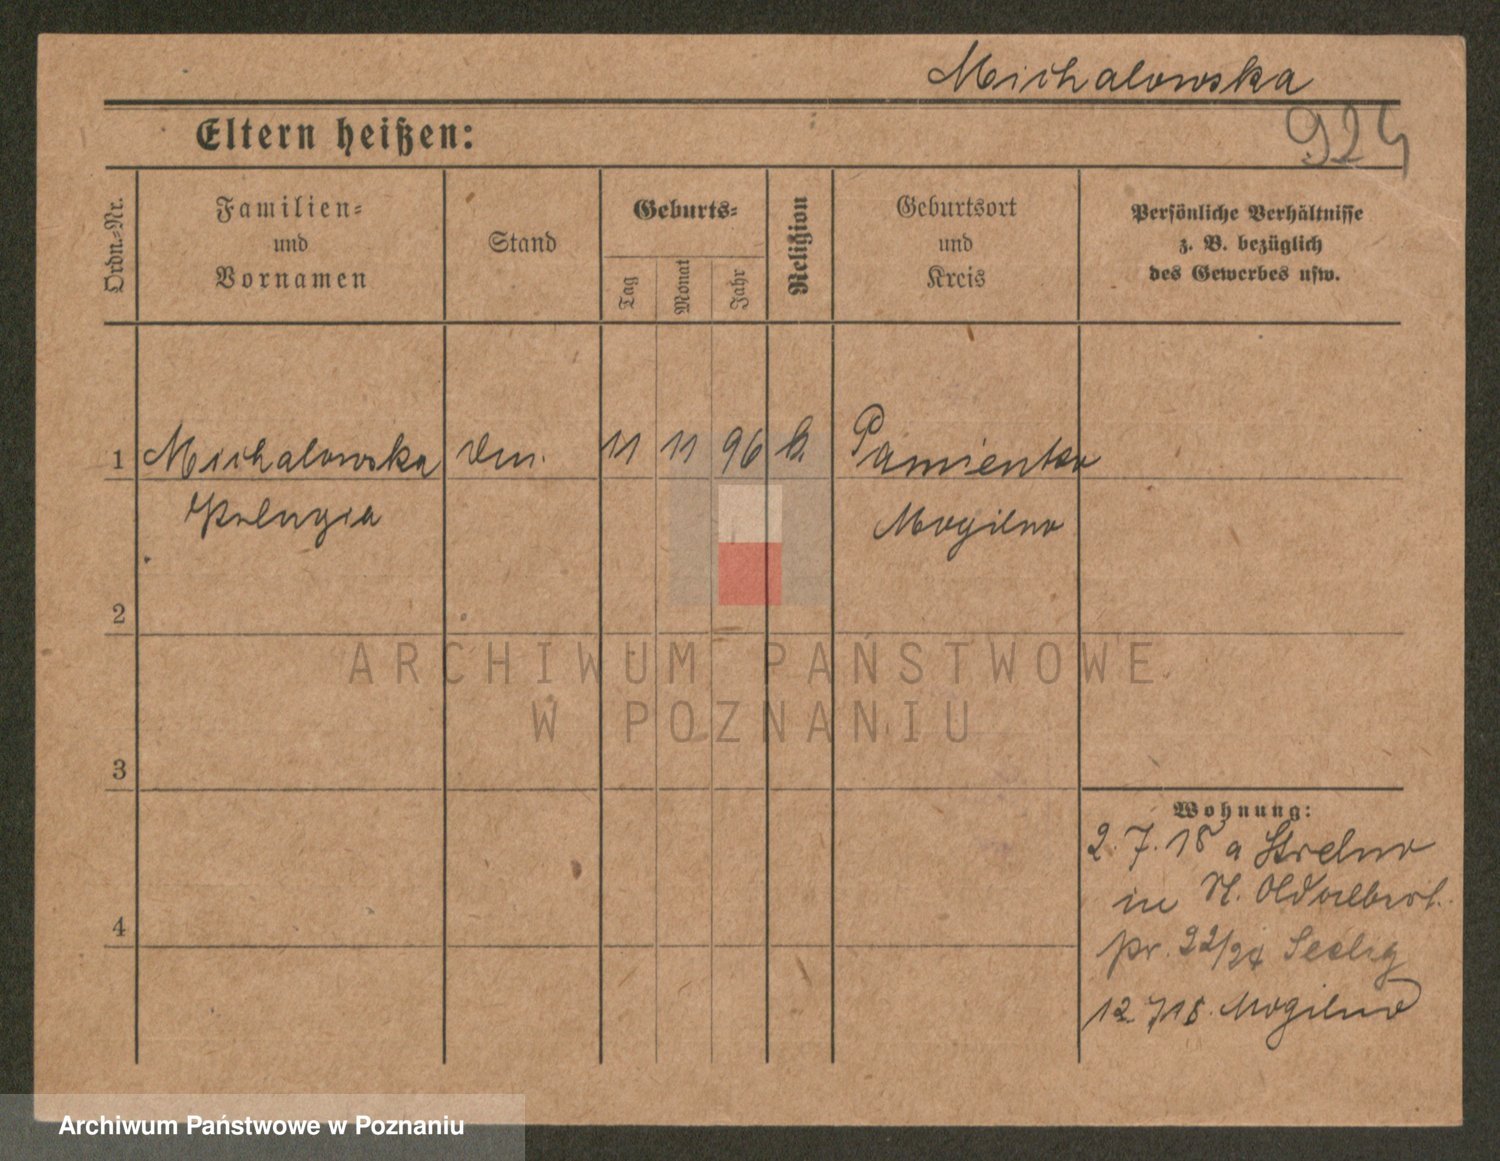 Michalowska
924
Eltern heißen:
Ordn.-Nr.
Familien-
und
Vornamen
Stand
Geburts-
Tag
Monat
Jahr
Religion
Geburtsort
und
Kreis
Persönliche Verhältnisse
z. B. bezüglich
des Gewerbes usw.
1 Michalowska 11 11 96 k. Pamientko
Pelagia Mogilno
2
3
4
Wohnung:
2.7.18 a Strelno
in
pr. 22/24
12.718. Mogilno
ARCHIWUM PAŃSTWOWE
W POZNANIU
Archiwum Państwowe w Poznaniu